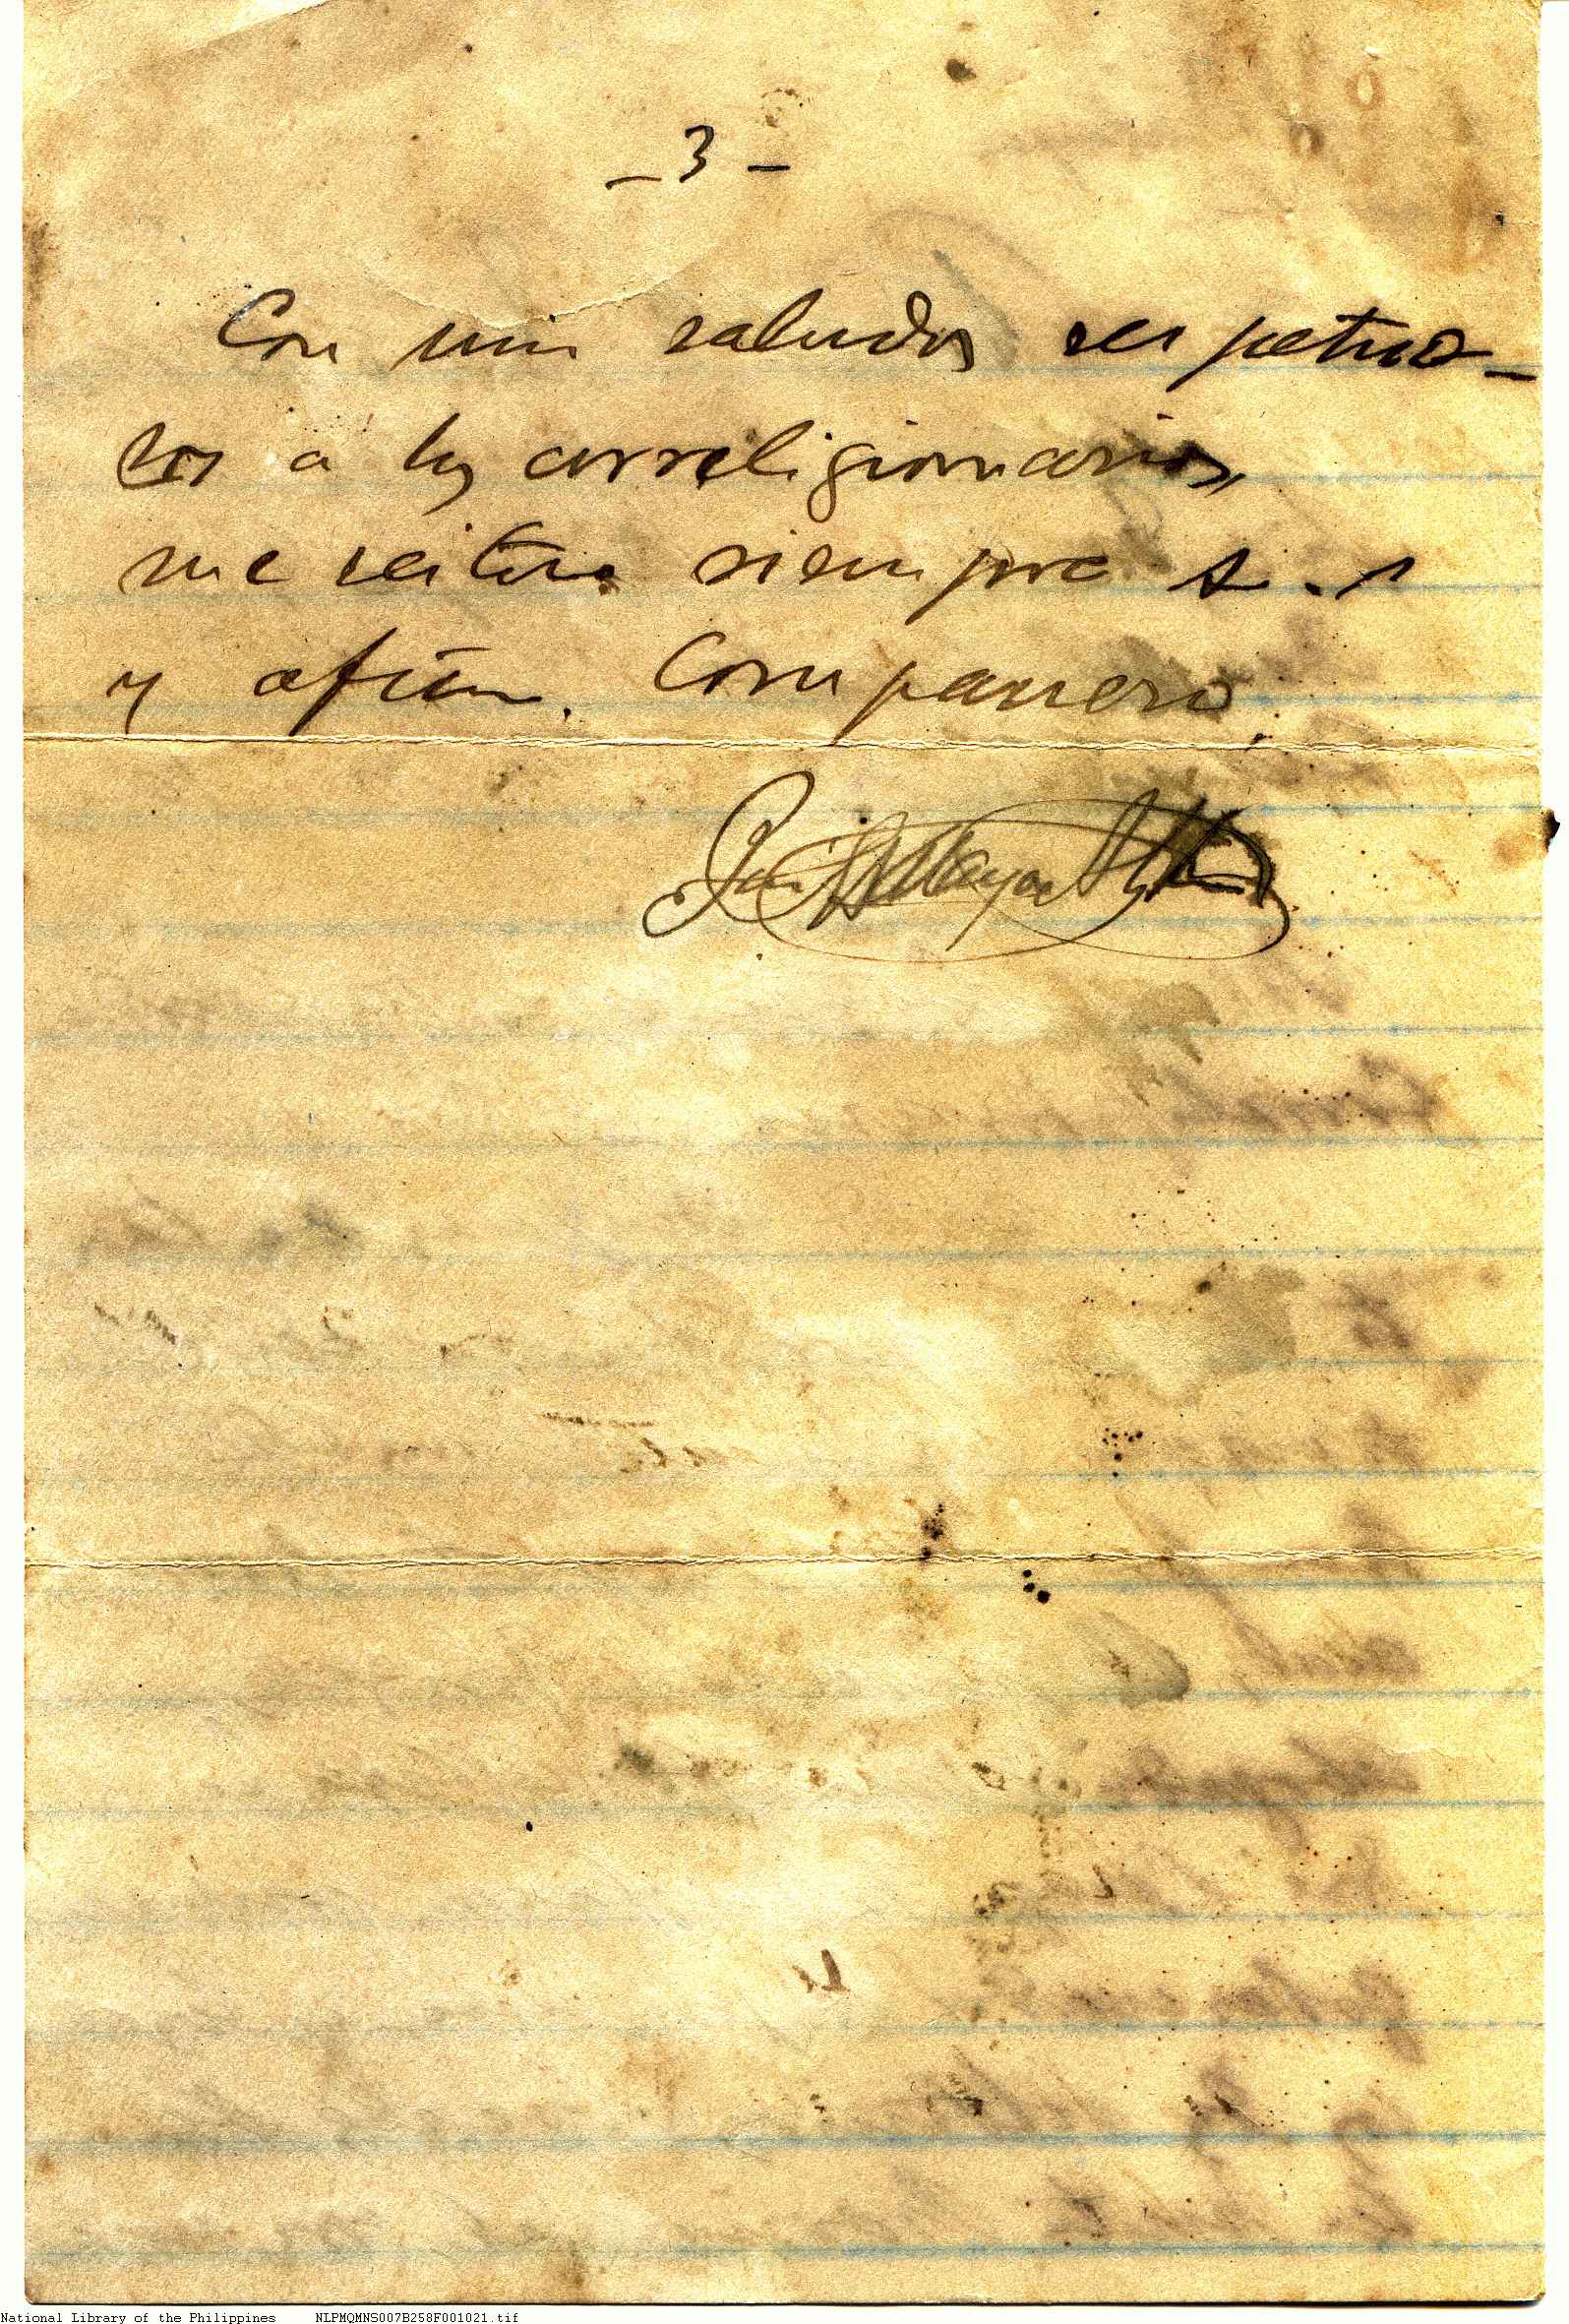 - 3 -
Con mis saludos respetuo-
sos a los correligionarios,
me reitero siempre s. s
y afimo. Companero,
National Library of the Philippines NLPMQMNS007B258F001021.tif